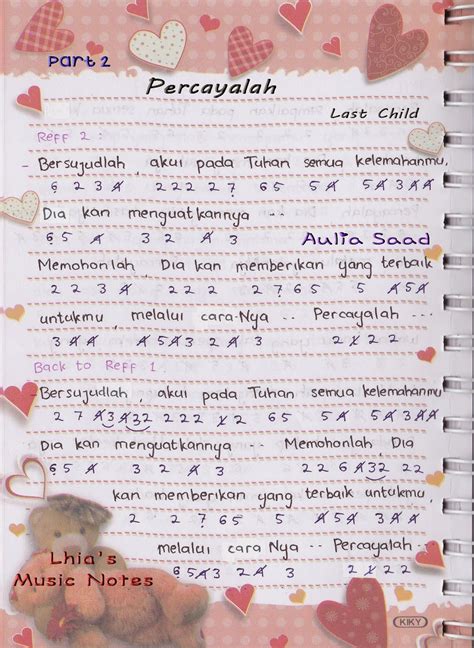 Part 2
Percayalah
Last Child
Reff 2
- Bersujudlah, akui pada Tuhan semua kelemahanmu,
6 2 3 4 2 2 2 2 7 6 5 5 4 5 4 3 4 4
Dia kan menguatkannya --
6 5 4 3 2 4 3
Aulia Saad
Memohonlah, Dia kan memberikan yang terbaik
2 2 3 4 2 2 2 2 2 7 6 5 5 4 5 4
untukmu, melalui cara-Nya -- Percayalah ---
3 4 4 4 5 4 3 2 4 3 2 1 2 2
Back to Reff 1
- Bersujudlah, akui pada Tuhan semua kelemahanmu
2 7 4 3 4 3 2 2 2 2 2 7 6 5 5 4 5 4 3 4 4
Dia kan menguatkannya -- Memohonlah, Dia
6 5 4 3 2 4 3 2 2 6 4 3 2 2 2
kan memberikan yang terbaik untukmu,
2 2 2 7 6 5 5 4 5 4 3 4 4
melalui cara Nya -- Percayalah ---
6 5 4 3 2 4 3 2 1 2 2
Lhia's
Music Notes
KIKY